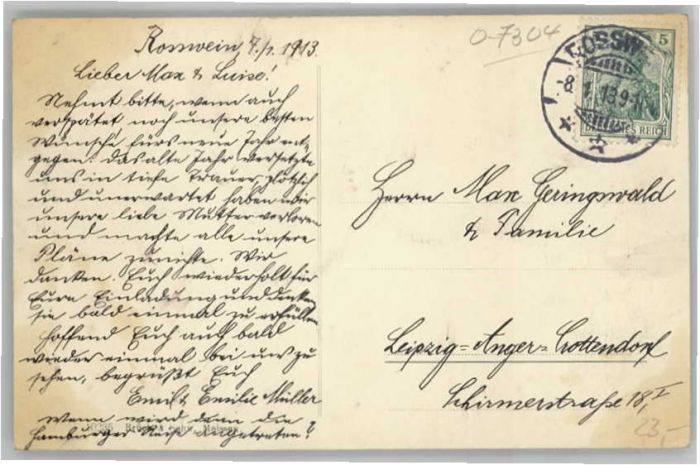 Rosswein, 7./1. 1913.
Lieber Max & Luise!
Nehmt bitte, wenn auch
verspätet noch unsere besten
Wünsche fürs neue Jahr ent-
gegen. Das alte Jahr versetzte
uns in tiefe Trauer, plötzlich
und unerwartet haben wir
unsere liebe Mutter verloren
und machte alle unsere
Pläne zunichte. Wir
danken Euch wiederholt für
Eure Einladung und denken
sie bald einmal zu erfüllen
hoffend Euch auch bald
wieder einmal bei uns zu
sehen, begrüßt Euch
Emil & Emilie Müller
Wenn wird denn die
Hamburger Reise angetreten?
Brück & Sohn, Meissen
0-7304
ROSSW
5
-8. 1. 13 9-
ES REICH
Herrn Max Geringswald
& Familie
Leipzig-Anger-Crottendorf
Schirmerstraße 18, I
23,-